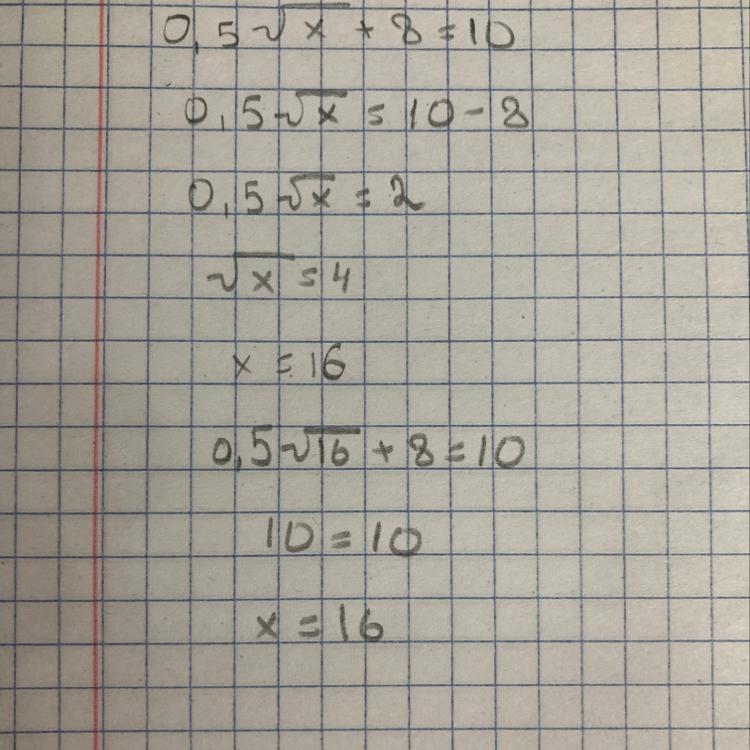 0,5√x + 8 = 10
0,5√x = 10 - 8
0,5√x = 2
√x = 4
x = 16
0,5√16 + 8 = 10
10 = 10
x = 16